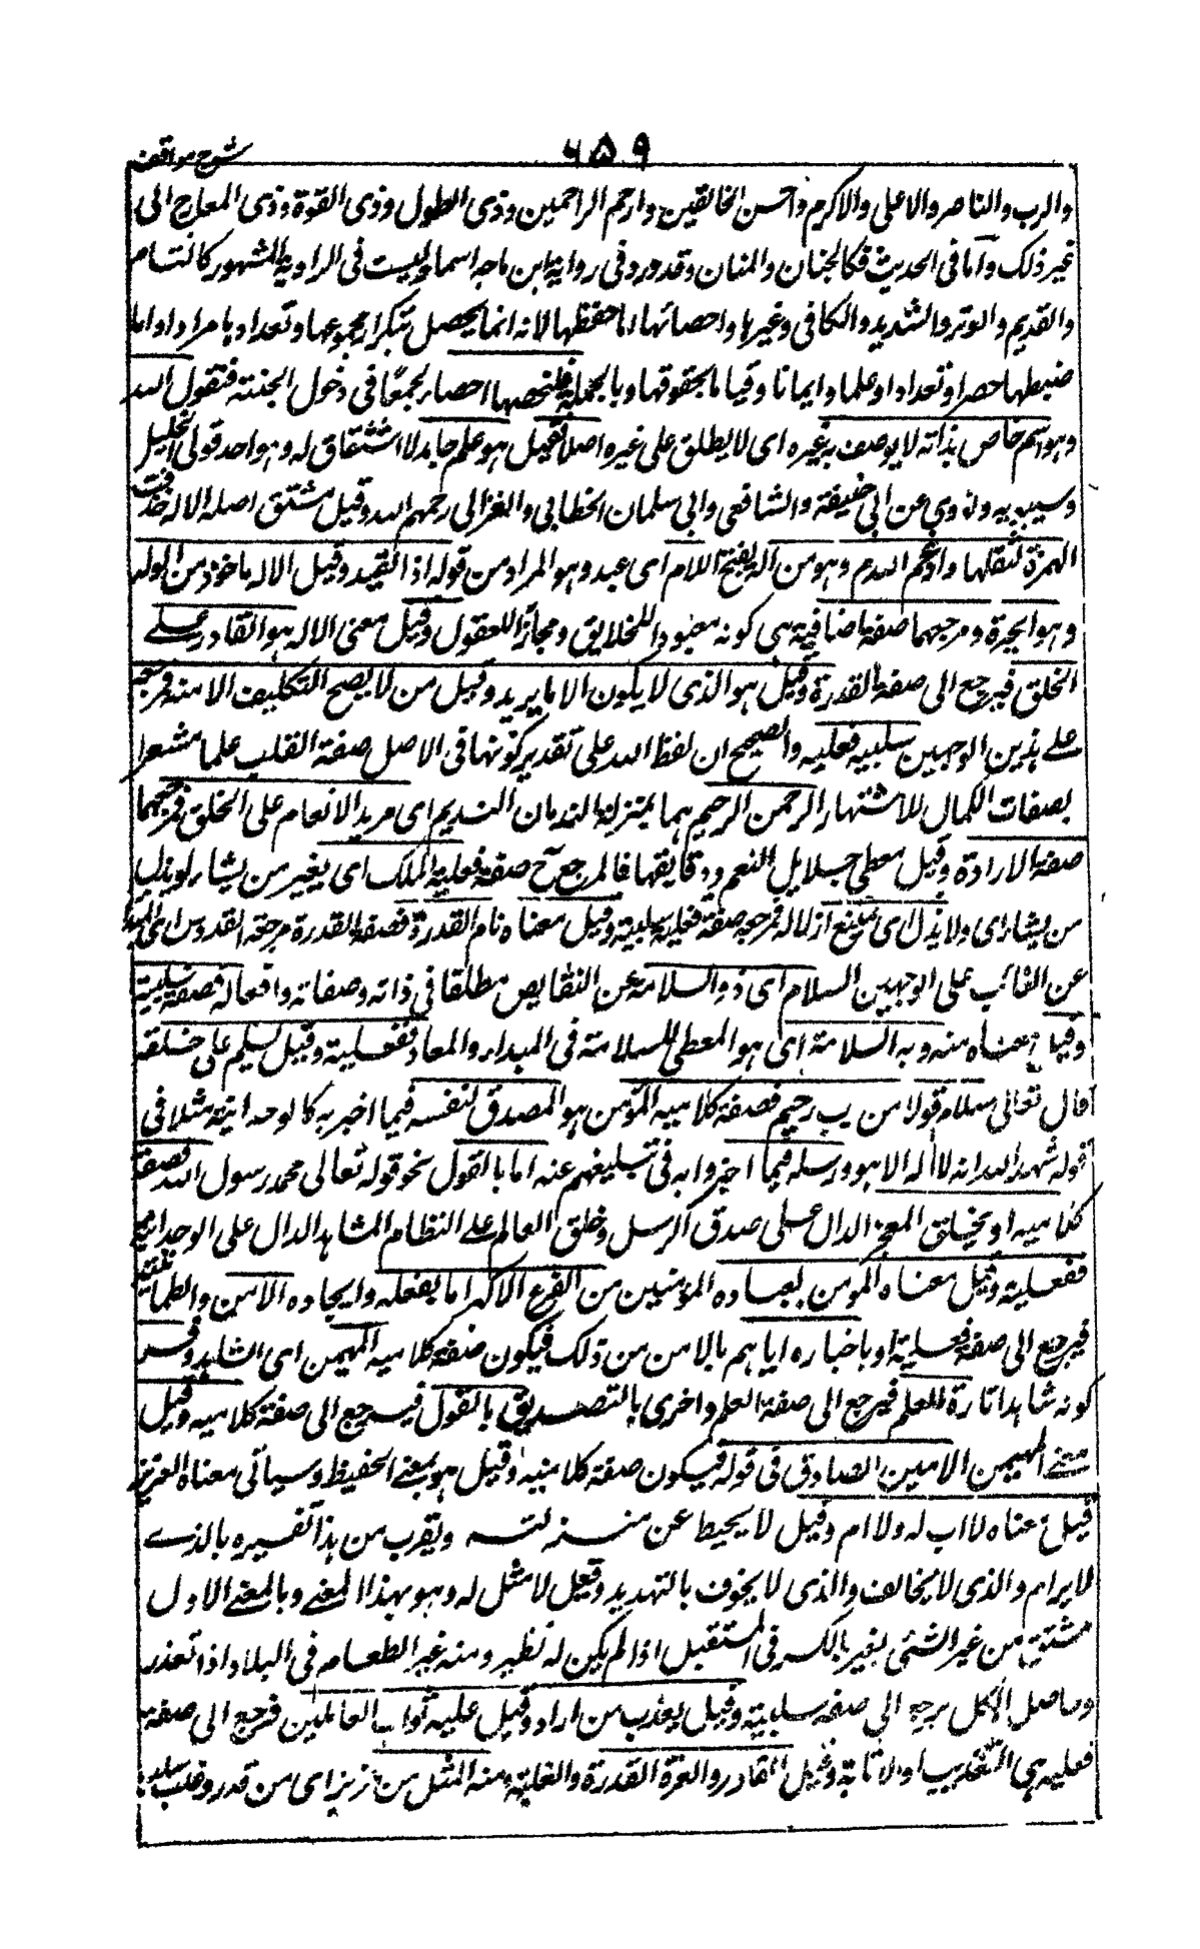 شرح مواقف
٦٥٩
والرب والناصر والاعلى والاكرم واحسن الخالقين وارحم الراحمين وذى الطول وذى القوة وذى المعارج الى
غير ذلك واما فى الحديث فكالحنان والمنان وقد ورد فى رواية ابن ماجه اسماء ليست فى الراوية المشهورة كالتام
والقديم والوتر والشديد والكافى وغيرها واحصائها اما حفظها لانه انما يحصل بتكرار مجموعها وتعدادها مرارا واما
ضبطها حصرا وتعدادا وعلما وايمانا وقياما بحقوقها وبالجملة فلنحصها احصاء طمعا فى دخول الجنة فنقول الله
وهو اسم خاص بذاته لا يوصف به غيره اى لا يطلق على غيره اصلا فقيل هو علم جامد لا اشتقاق له وهو احد قولى الخليل
وسيبويه وروى عن ابى حنيفة والشافعى وابى سلمان الخطابى والغزالى رحمهم الله وقيل مشتق اصله الاله حذفت
الهمزة لثقلها وادغم اللام وهو من اله بفتح اللام اى عبد وهو المراد من قوله اذا تعبد وقيل الاله ماخوذ من الوله
وهو الحيرة ومرجعهما صفة اضافية هى كونه معبودا للخلايق ومحارا للعقول وقيل معنى الاله هو القادر على
الخلق فيرجع الى صفة القدرة وقيل هو الذى لا يكون الا ما يريد وقيل من لا يصح التكليف الا منه فمرجعه
على هذين الوجهين سلبيه فعليه والصحيح ان لفظ الله على تقدير كونها فى الاصل صفة القلب علما مشعرا
بصفات الكمال للاشتهار الرحمن الرحيم هما بمنزلة الندمان النديم اى مريد الانعام على الخلق فمرجعهما
صفة الارادة وقيل معطى جلايل النعم ودقايقها فالمرجع ح صفة فعلية الملك اى يعز من يشاء ويذل
من يشاء اى ولا يذل اى يمتنع ازلاله فمرجعه صفة فعلية سلبية وقيل معناه تام القدرة فصفة القدرة مرجعه القدوس اى المبرأ
عن المعائب على الوجهين السلام اى ذو السلامة عن النقايص مطلقا فى ذاته وصفاته وافعاله فصفة سلبية
وقيل معناه منه وبه السلامة اى هو المعطى للسلامة فى المبداء والمعاد ففعلية وقيل يسلم على خلقه
قال تعالى سلام قولا من رب رحيم فصفة كلاميه المؤمن هو المصدق لنفسه فيما اخبر به كالوحدانية مثلا فى
قوله شهد الله انه لا اله الا هو ورسله فيما اخبروا به فى تبليغهم عنه اما بالقول نحو قوله تعالى محمد رسول الله فصفة
كلاميه او بخلق المعجز الدال على صدق الرسل وخلق العالم على النظام المشاهد الدال على الوحدانية
ففعلية وقيل معناه المومن لعباده المؤمنين من الفزع الاكبر اما بفعله وايجاده الامن والطمانينة
فيرجع الى صفة فعلية او باخباره اياهم بالامن من ذلك فيكون صفة كلاميه المهيمن اى الشاهد وفسر
كونه شاهدا تارة بالعلم فيرجع الى صفة العلم واخرى بالتصديق بالقول فيرجع الى صفة كلاميه وقيل
معنى المهيمن الامين الصادق فى قوله فيكون صفة كلامية وقيل هو بمعنى الحفيظ وسياتى معناه العزيز
قيل معناه لا اب له ولا ام وقيل لا يحيط عن منزلته ويقرب من هذا تفسيره بالذى
لا يرام والذى لا يخالف والذى لا يخوف بالتهديد وقيل لا مثل له وهو بهذا المعنى وبالمعنى الاول
مشتق من عز الشئى يعز بالكسر فى المستقبل اذا لم يكن له نظير ومنه عز الطعام فى البلاد اذا تعذر
وحاصل الكل يرجع الى صفه سلبية وقيل يعذب من اراد وقيل عليه ثواب العاملين فرجع الى صفة
فعليه هى التعذيب او الاثابة وقيل القادر والعزة القدرة والغلبة ومنه المثل من عز بز اى من قدر وغلب سلب